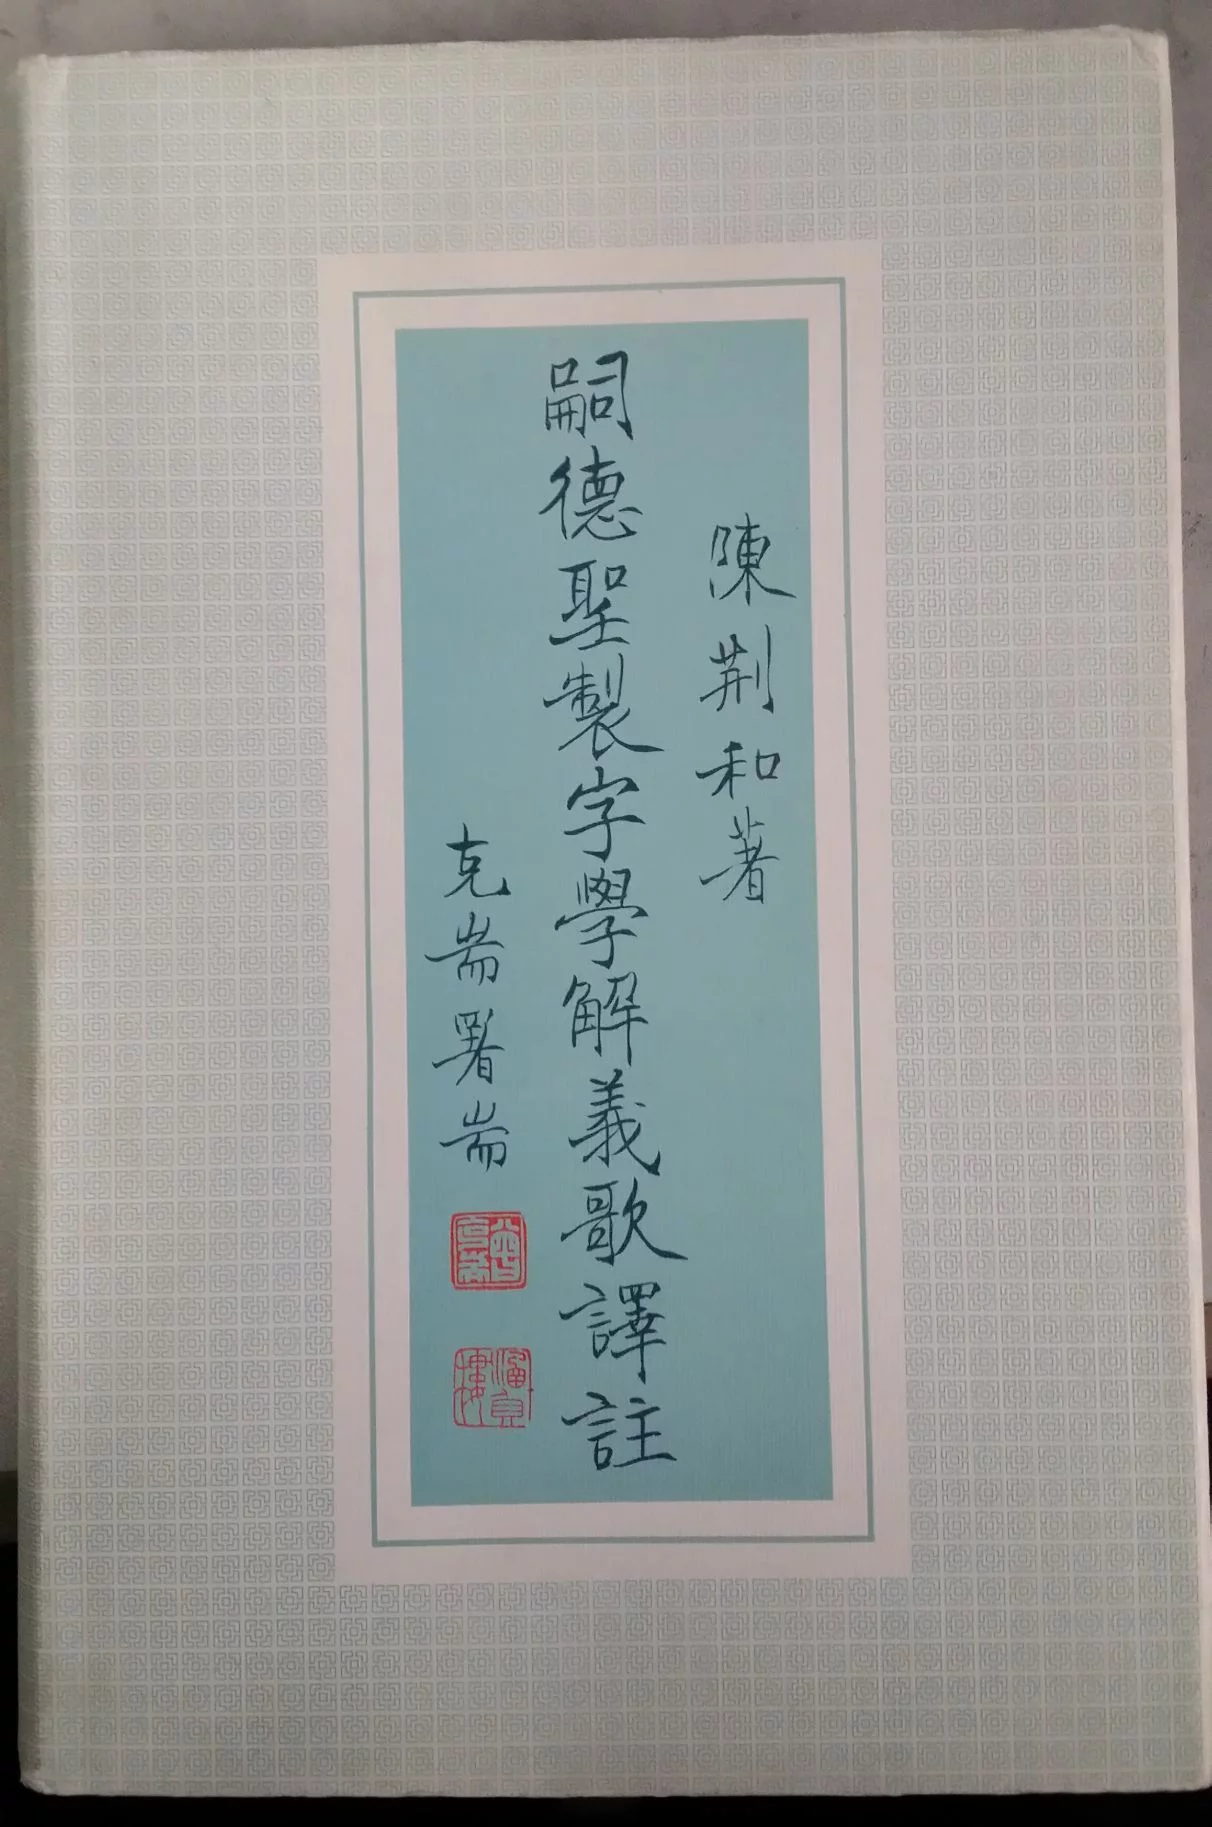 陳荆和著
嗣德聖製字學解義歌譯註
克耑署耑